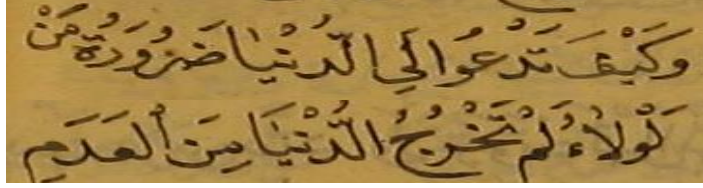 وَكَيْفَ تَدْعُوا اِلَي الدُّنْيَا ضَرُورَةُ مَنْ
لَوْلَاهُ لَمْ تَخْرُجُ الدُّنْيَا مِنَ الْعَدَمِ